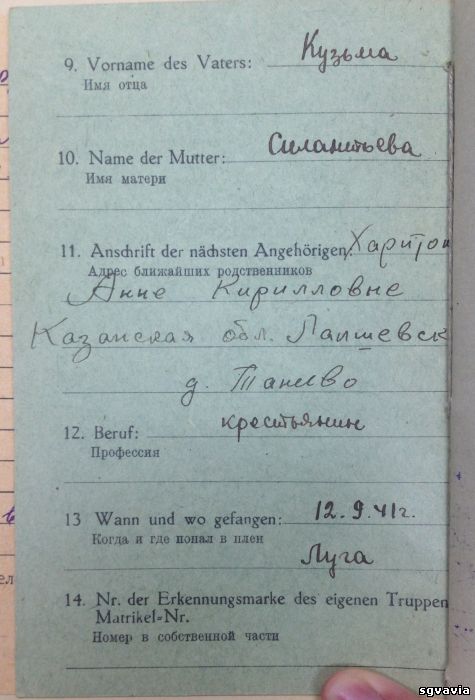 9. Vorname des Vaters: Кузьма
Имя отца
10. Name der Mutter: Силантьева
Имя матери
11. Anschrift der nächsten Angehörigen: Харитон
Адрес ближайших родственников
Анне Кирилловне
Казанская обл. Лаишевск
д. Танево
12. Beruf: крестьянин
Профессия
13 Wann und wo gefangen: 12.9.41г.
Когда и где попал в плен
Луга
14. Nr. der Erkennungsmarke des eigenen Truppen
Matrikel-Nr.
Номер в собственной части
sgvavia